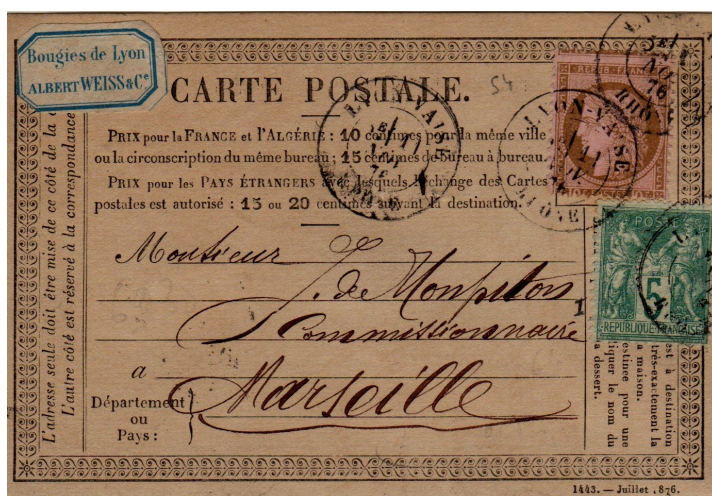 Bougies de Lyon
ALBERT WEISS & Cie
CARTE POSTALE.
54
PRIX pour la FRANCE et l'ALGÉRIE : 10 centimes pour la même ville
ou la circonscription du même bureau ; 15 centimes de bureau à bureau.
PRIX pour les PAYS ÉTRANGERS avec lesquels l'échange des Cartes
postales est autorisé : 15 ou 20 centimes suivant la destination.
LYON-VAISE
RHONE
RHO
76
POST
5
REPUBLIQUE FRANÇAISE
Monsieur
J. de Monpiton
Commissionnaire
a
Marseille
Département
ou
Pays :
L'adresse seule doit être mise de ce côté de la
L'autre côté est réservé à la correspondance
est à destination
très-exactement la
a maison.
estinée pour une
iquer le nom du
a dessert.
1443. — Juillet 1876.